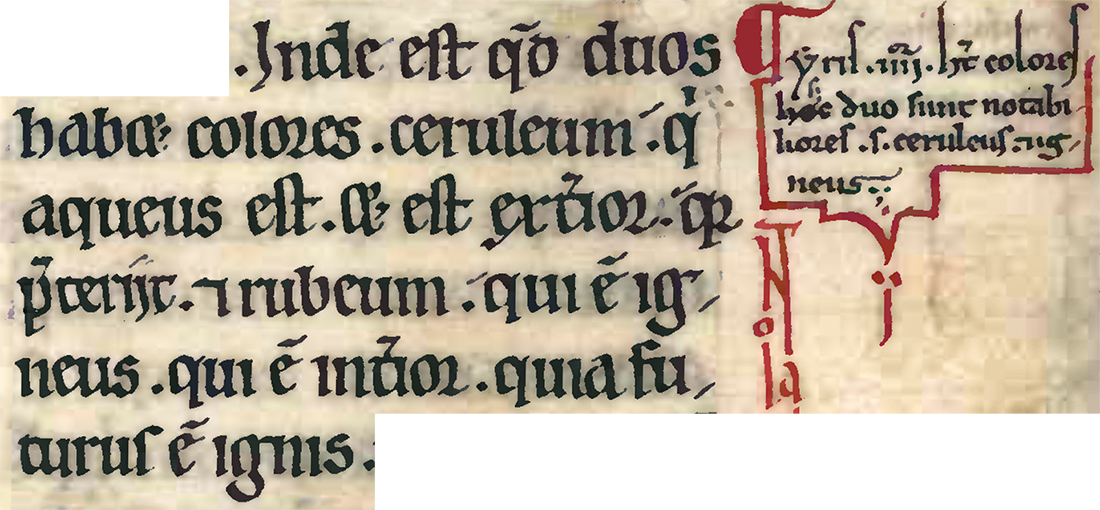 .Inde est qd̄ duos
habet colores .ceruleum .qⁱ
aqueus est. et est exterior. qr̄
p̄terijt. ⁊ rubeum .qui ē ig-
neus .qui ē int̄ior .quia fu-
turus ē ignis .
yris .iiii. hꝫ colores
hoc duo sunt notabi-
liores .s. ceruleus ⁊ ig-
neus
Nota